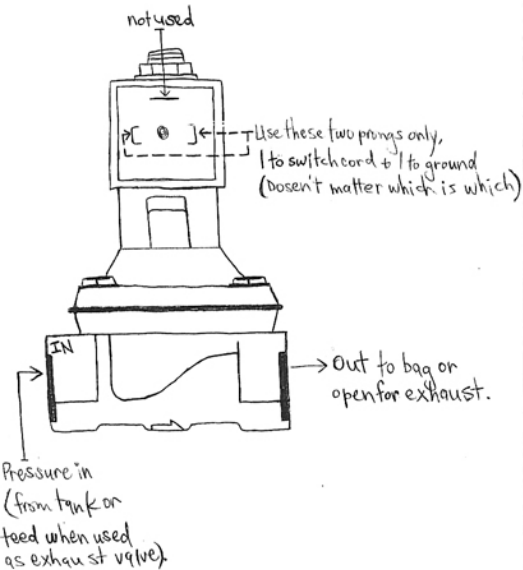 not used
Use these two prongs only,
1 to switch cord + 1 to ground
(Dosen't matter which is which)
IN
Out to bag or
open for exhaust.
Pressure in
(from tank or
feed when used
as exhaust valve).